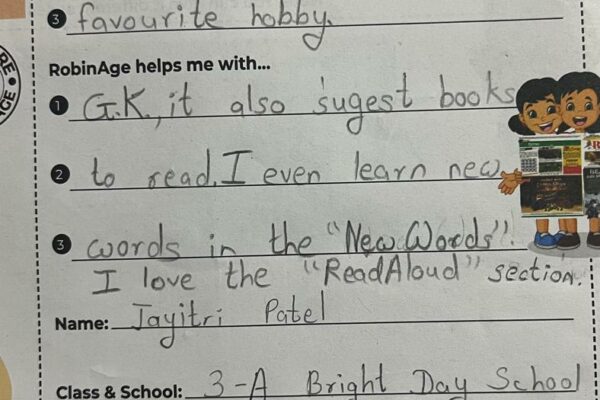 3 favourite hobby.
RobinAge helps me with...
1 G.K., it also sugest books
2 to read. I even learn new
3 words in the "New Words".
I love the "ReadAloud" section.
Name: Jayitri Patel
Class & School: 3-A Bright Day School